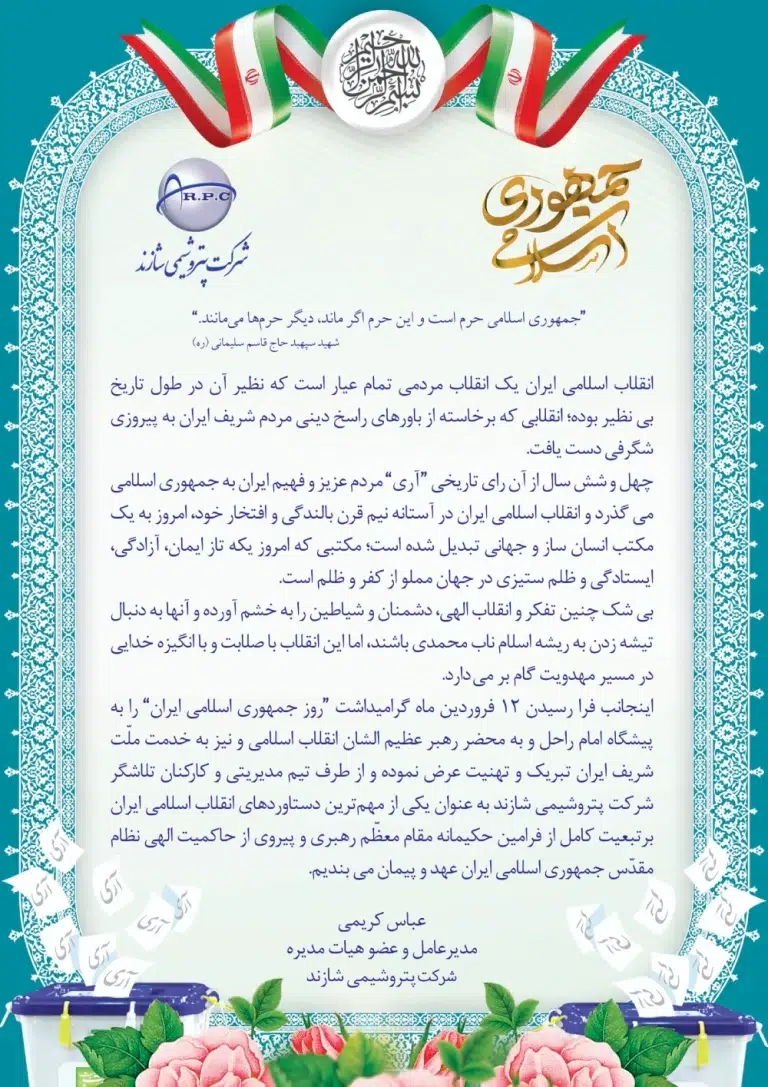 بسم الله الرحمن الرحیم
جمهوری
اسلامی
R.P.C
شرکت پتروشیمی شازند
”جمهوری اسلامی حرم است و این حرم اگر ماند، دیگر حرم‌ها می‌مانند.“
شهید سپهبد حاج قاسم سلیمانی (ره)
انقلاب اسلامی ایران یک انقلاب مردمی تمام عیار است که نظیر آن در طول تاریخ
بی نظیر بوده؛ انقلابی که برخاسته از باورهای راسخ دینی مردم شریف ایران به پیروزی
شگرفی دست یافت.
چهل و شش سال از آن رای تاریخی ”آری“ مردم عزیز و فهیم ایران به جمهوری اسلامی
می گذرد و انقلاب اسلامی ایران در آستانه نیم قرن بالندگی و افتخار خود، امروز به یک
مکتب انسان ساز و جهانی تبدیل شده است؛ مکتبی که امروز یکه تاز ایمان، آزادگی،
ایستادگی و ظلم ستیزی در جهان مملو از کفر و ظلم است.
بی شک چنین تفکر و انقلاب الهی، دشمنان و شیاطین را به خشم آورده و آنها به دنبال
تیشه زدن به ریشه اسلام ناب محمدی باشند، اما این انقلاب با صلابت و با انگیزه خدایی
در مسیر مهدویت گام بر می‌دارد.
اینجانب فرا رسیدن ۱۲ فروردین ماه گرامیداشت ”روز جمهوری اسلامی ایران“ را به
پیشگاه امام راحل و به محضر رهبر عظیم الشان انقلاب اسلامی و نیز به خدمت ملّت
شریف ایران تبریک و تهنیت عرض نموده و از طرف تیم مدیریتی و کارکنان تلاشگر
شرکت پتروشیمی شازند به عنوان یکی از مهم‌ترین دستاوردهای انقلاب اسلامی ایران
بر تبعیت کامل از فرامین حکیمانه مقام معظّم رهبری و پیروی از حاکمیت الهی نظام
مقدّس جمهوری اسلامی ایران عهد و پیمان می بندیم.
عباس کریمی
مدیرعامل و عضو هیات مدیره
شرکت پتروشیمی شازند
آری
آری
آری
آری
آری
آری
آری
آری